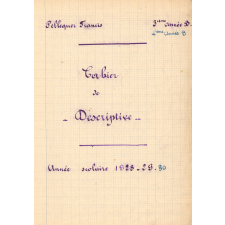 Pellequer Francis
3ème Année D.
4ème Année D
Cahier
de
- Descriptive -
Année scolaire 1928-29.30